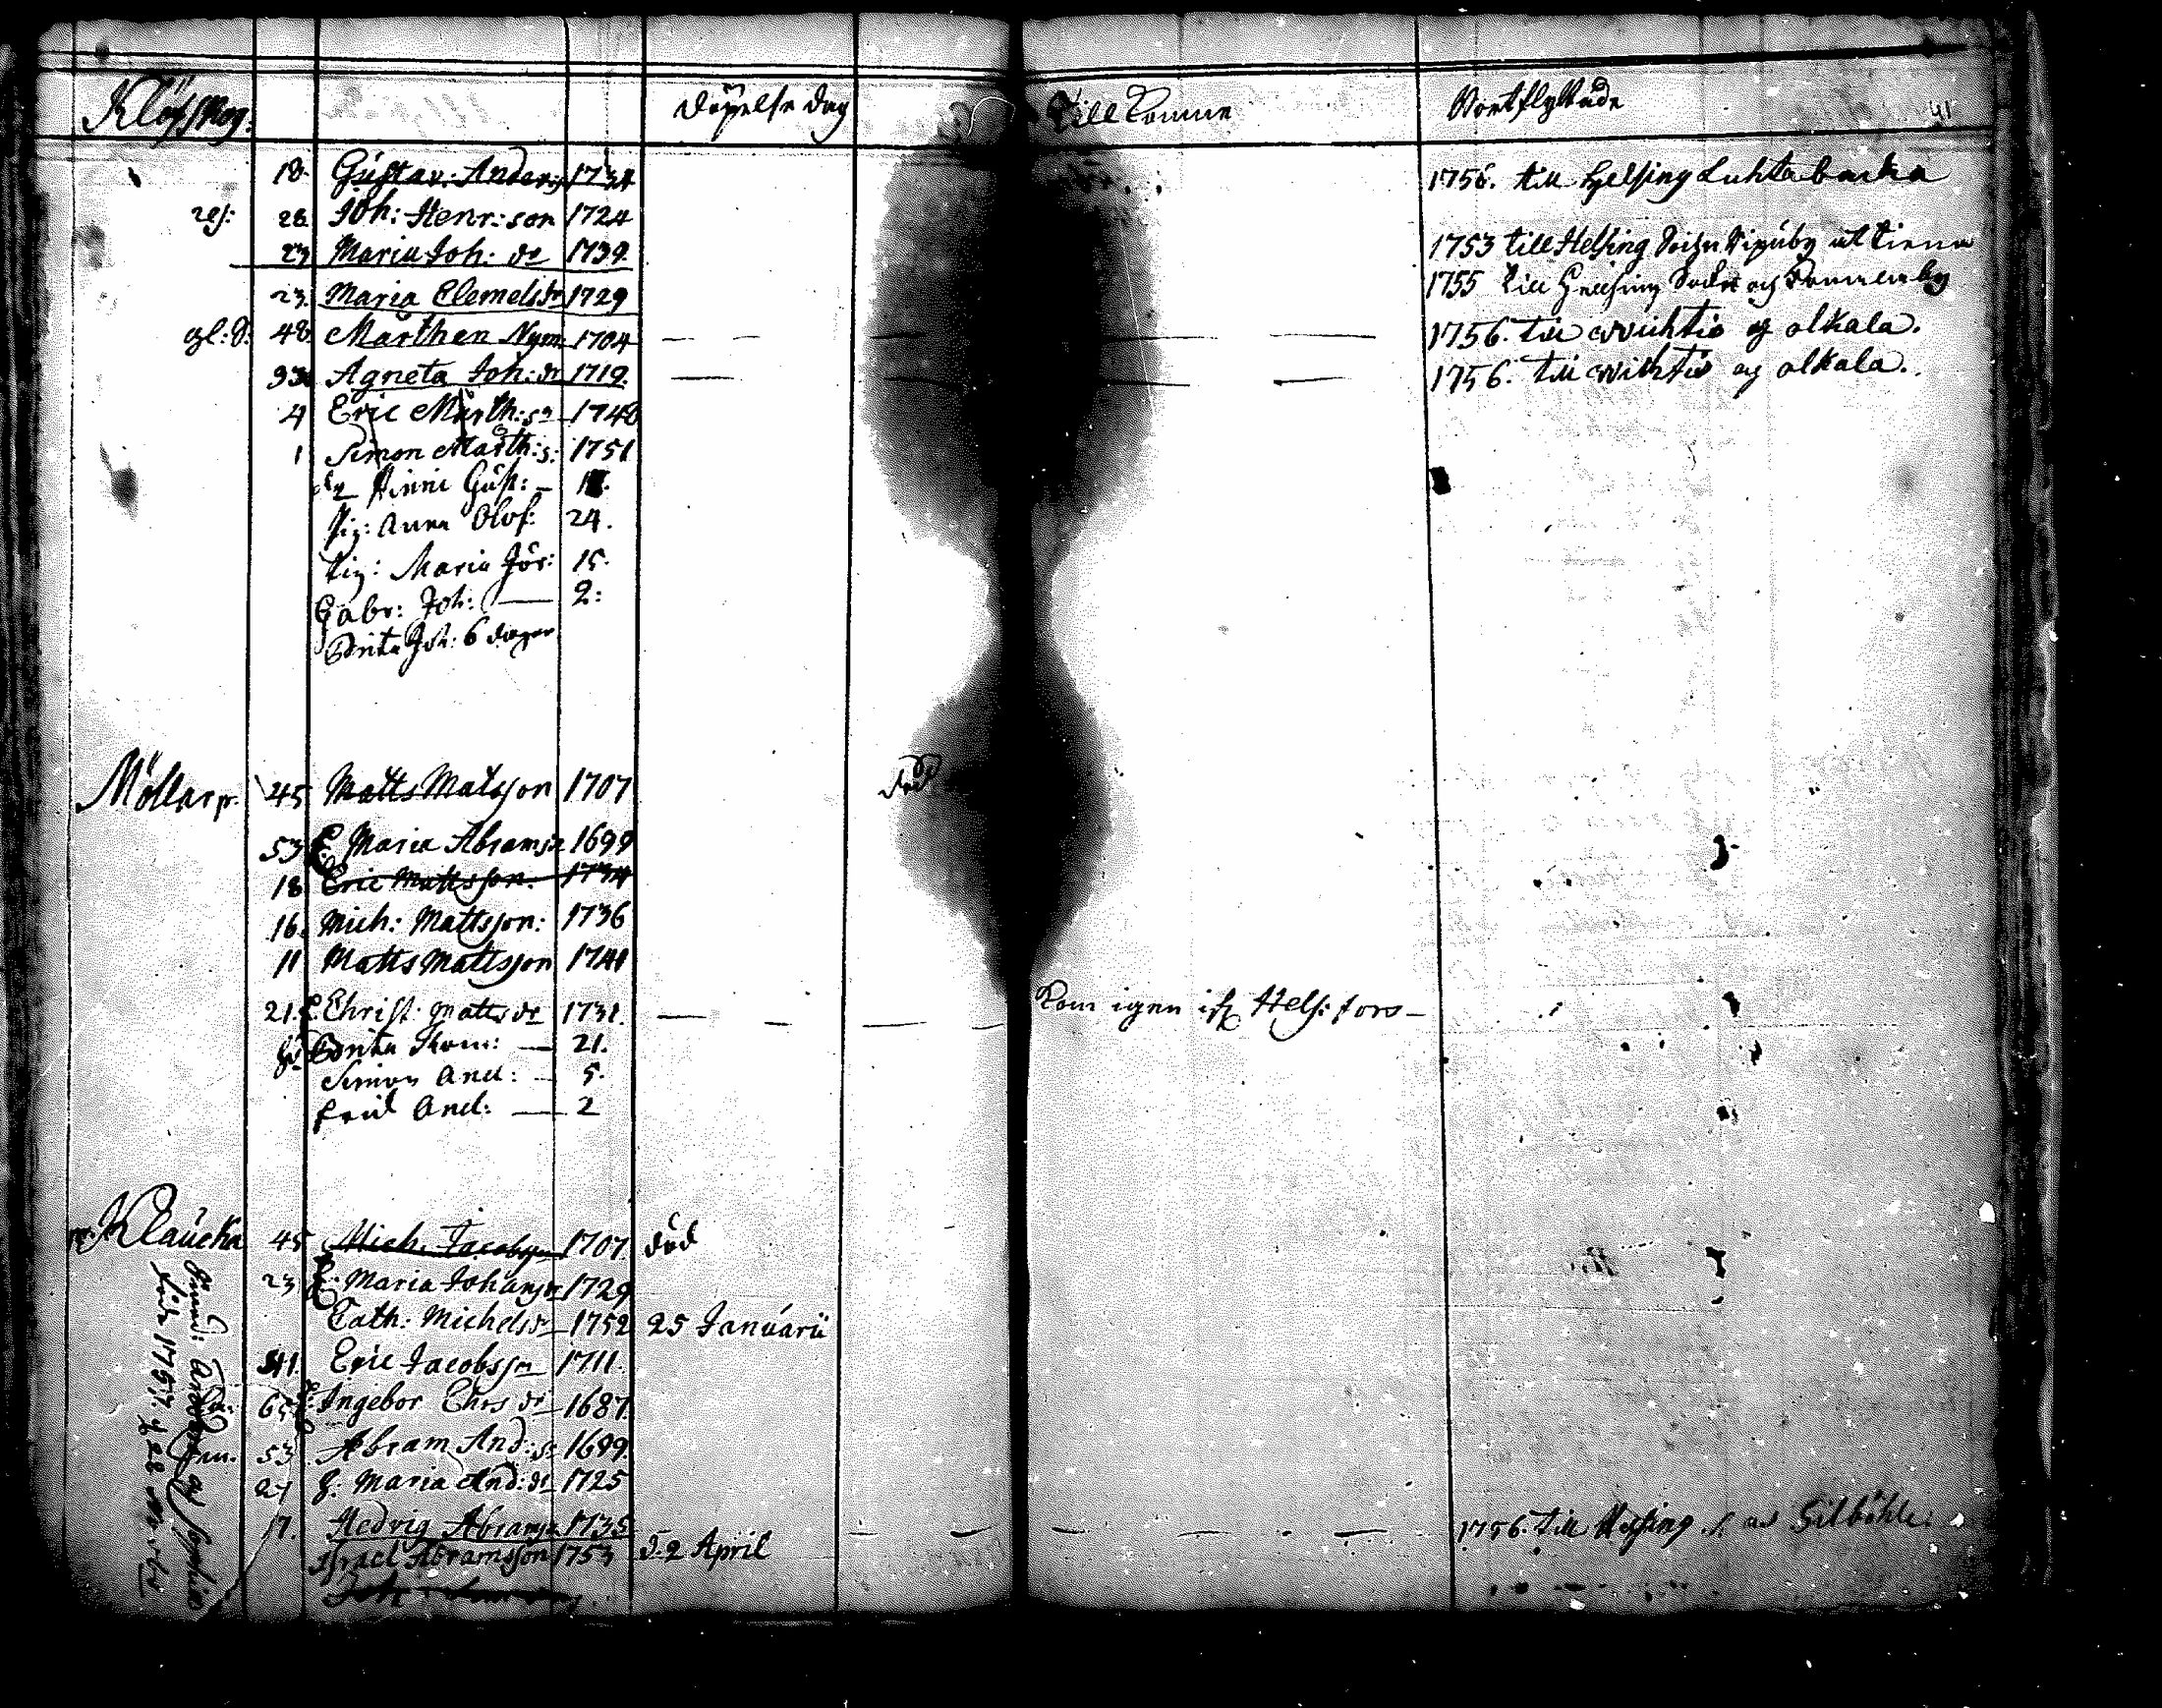 Klöfskog. döpelse dag Till komne Bortflyttade 41
18. Gustav: Anders 1734 1756. till Helsing Luhtabacka
28 Joh: Henr: son 1724
23 Maria Joh: dr 1739. 1753 till Helsing
23. Maria Clemets dr 1729 1755 till Helsing
gl: S: 48 Mårthen Nym 1704 — — — — 1756. till wichtis og olkala.
33 Agneta Joh: dr 1719. — — — — 1756. till wichtis og olkala.
4 Eric Mårth: sn 1748
1 Simon Mårth: s: 1751
Hinni Gust: —
Pig: Anna Olof: 24.
Pig: Maria Jör: 15.
Gabr: Joh: — 2:
Brita Joh: 6 dagar
Möllar p. 45 Matts Matsson 1707 död
53 E Maria Abrams dr 1699
18 Eric Mattsson. 1734
16. Mich: Mattsson: 1736
11 Matts Mattsson 1741
21. Christ: Matts dr 1731. — — — — kom igen if Hels: fors —
Brita Thom: — 21.
Simon And: — 5.
Erik And: — 2
Klaucka 45 Mich. Jacobsson 1707 död
23 E: Maria Johans dr 1729
Cath: Michels dr 1752 25 Januarii
41. Eric Jacobsson 1711.
65 Ingebor Ehrs dr 1687.
53 Abram And: s: 1699.
27 h: Maria And: dr 1725
17. Hedvig Abrams dr 1735 — — — — 1756. till Helsing s. as Silböhle.
Israel Abramsson 1753 d. 2 April